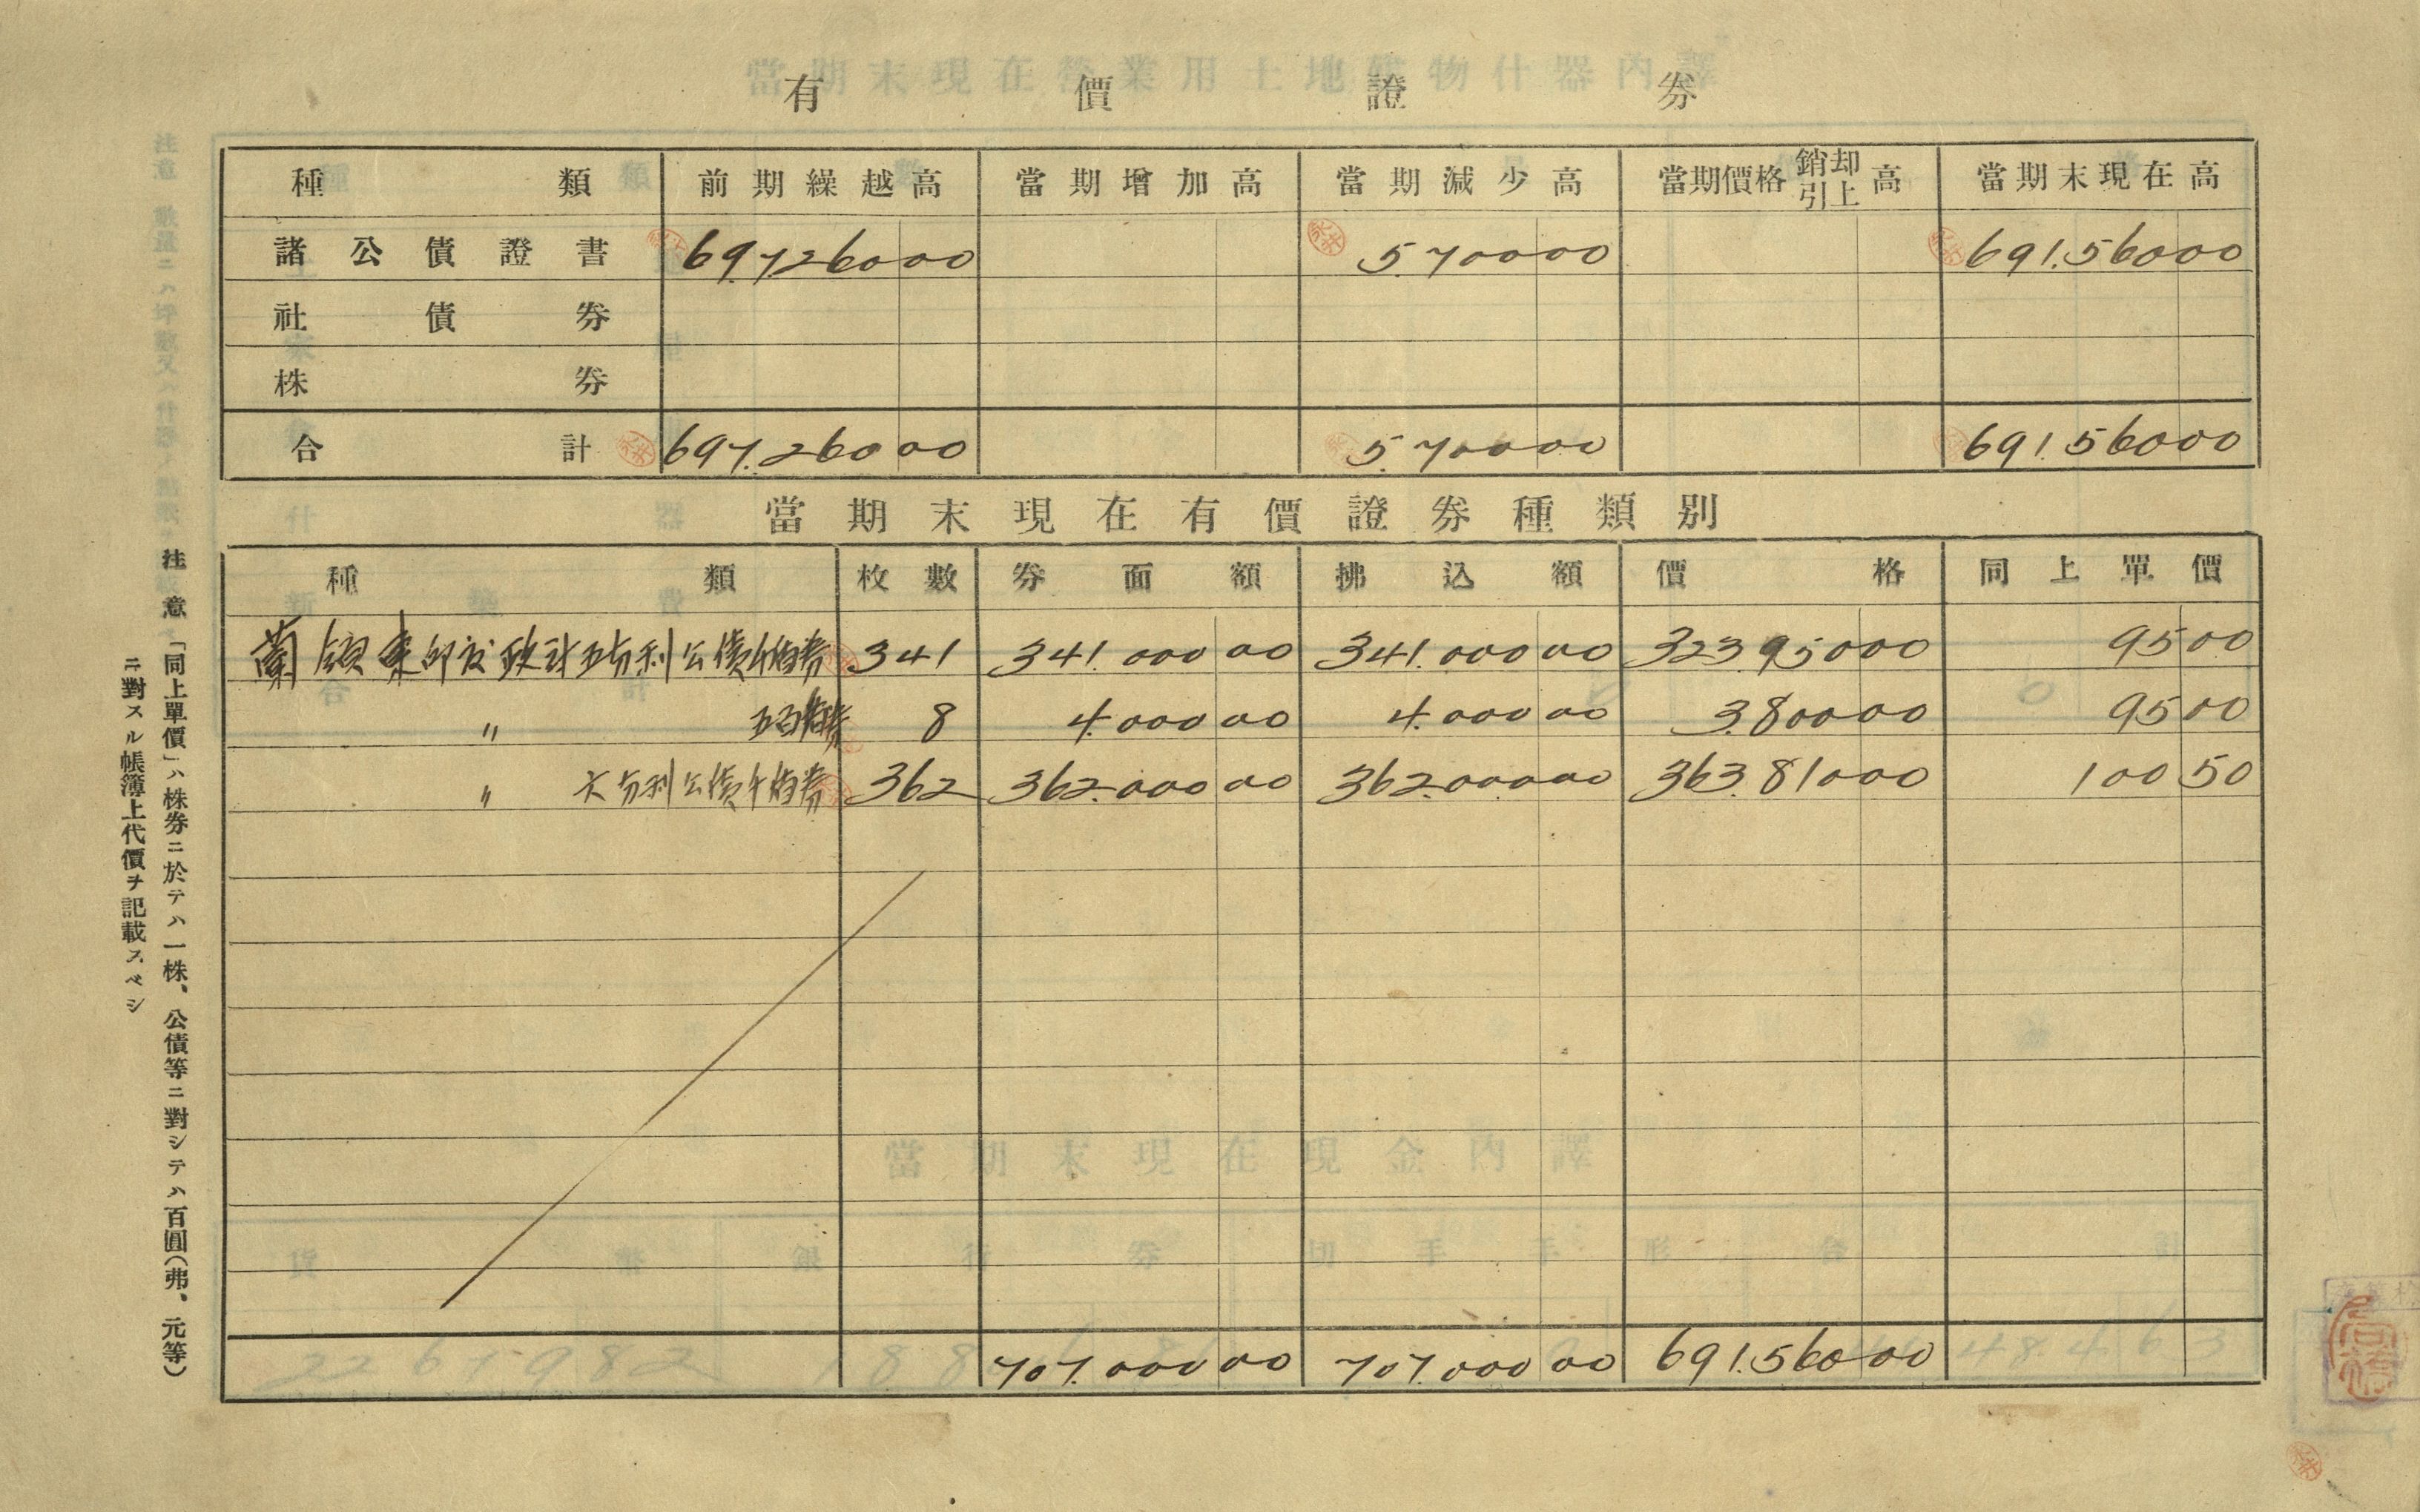 有價證券
種類 前期繰越高 當期増加高 當期減少高 當期價格銷却引上高 當期末現在高
諸公債證書 697.260 00 5.700 00 691.560 00
社債券
株券
合計 697.260 00 5.700 00 691.560 00
當期末現在有價證券種類別
種類 枚數 券面額 拂込額 價格 同上單價
蘭領東印度政計五分利公債千盾券 341 341.000 00 341.000 00 323.950 00 95 00
〃 五百盾券 8 4.000 00 4.000 00 3.800 00 95 00
〃 六分利公債千盾券 362 362.000 00 362.000 00 363.810 00 100 50
707.000 00 707.000 00 691.560 00
注意 「同上單價」ハ株券ニ於テハ一株、公債等ニ對シテハ百圓(弗、元等)
ニ對スル帳簿上代價ヲ記載スベシ